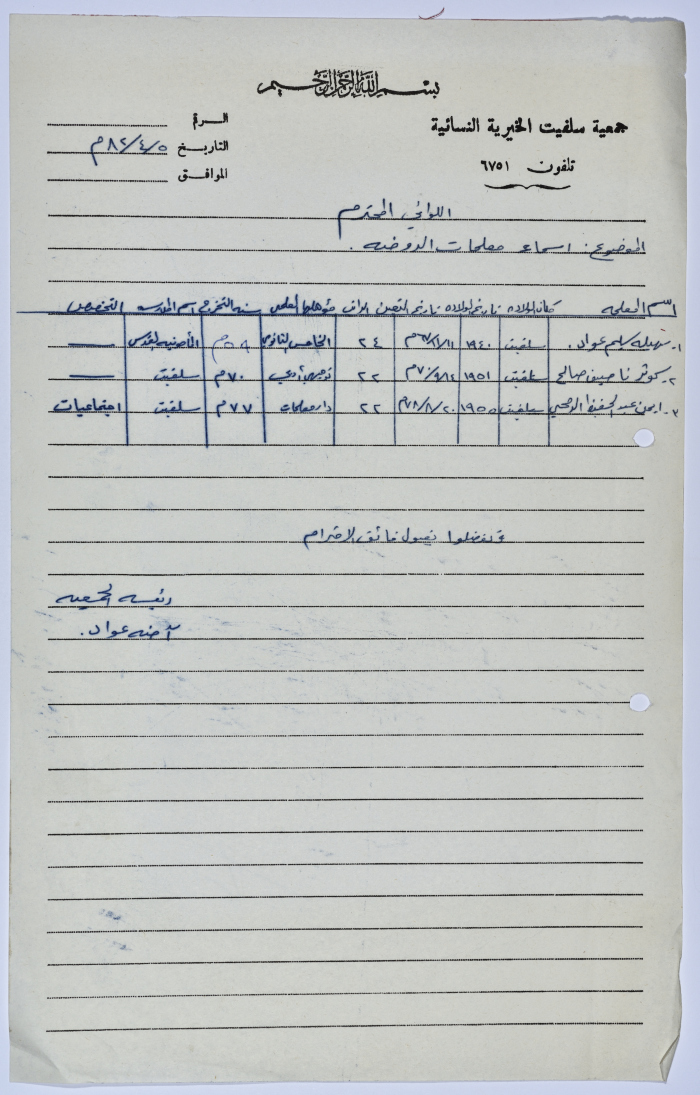 بسم الله الرحمن الرحيم
جمعية سلفيت الخيرية النسائية
تلفون ٦٧٥١
الرقم
التاريخ ٨٢/٤/٥م
الموافق
اللوائي المحترم
الموضوع: اسماء معلمات الروضه.
اسم المعلمه مكان الولاده تاريخ الولاده تاريخ التعين الراتب مؤهلها العلمي سنة التخرج اسم المدرسه التخصص
١- سهيله سليم عواد. سلفيت ١٩٤٠ ٢٤ الخامس الثانوي ٥٩م القدس —
٢- كوثر ناصيف صالح سلفيت ١٩٥١ ٧٠/٩/١٢م ٢٢ توجيهي أدبي ٧٠م سلفيت —
٣- عبد الحفيظ سلفيت ١٩٥٥ ٧٨/٨/٢٠م ٢٢ دار معلمات ٧٧م سلفيت اجتماعيات
وتفضلوا بقبول فائق الاحترام
رئيسه الجمعيه
آمنه عواد.